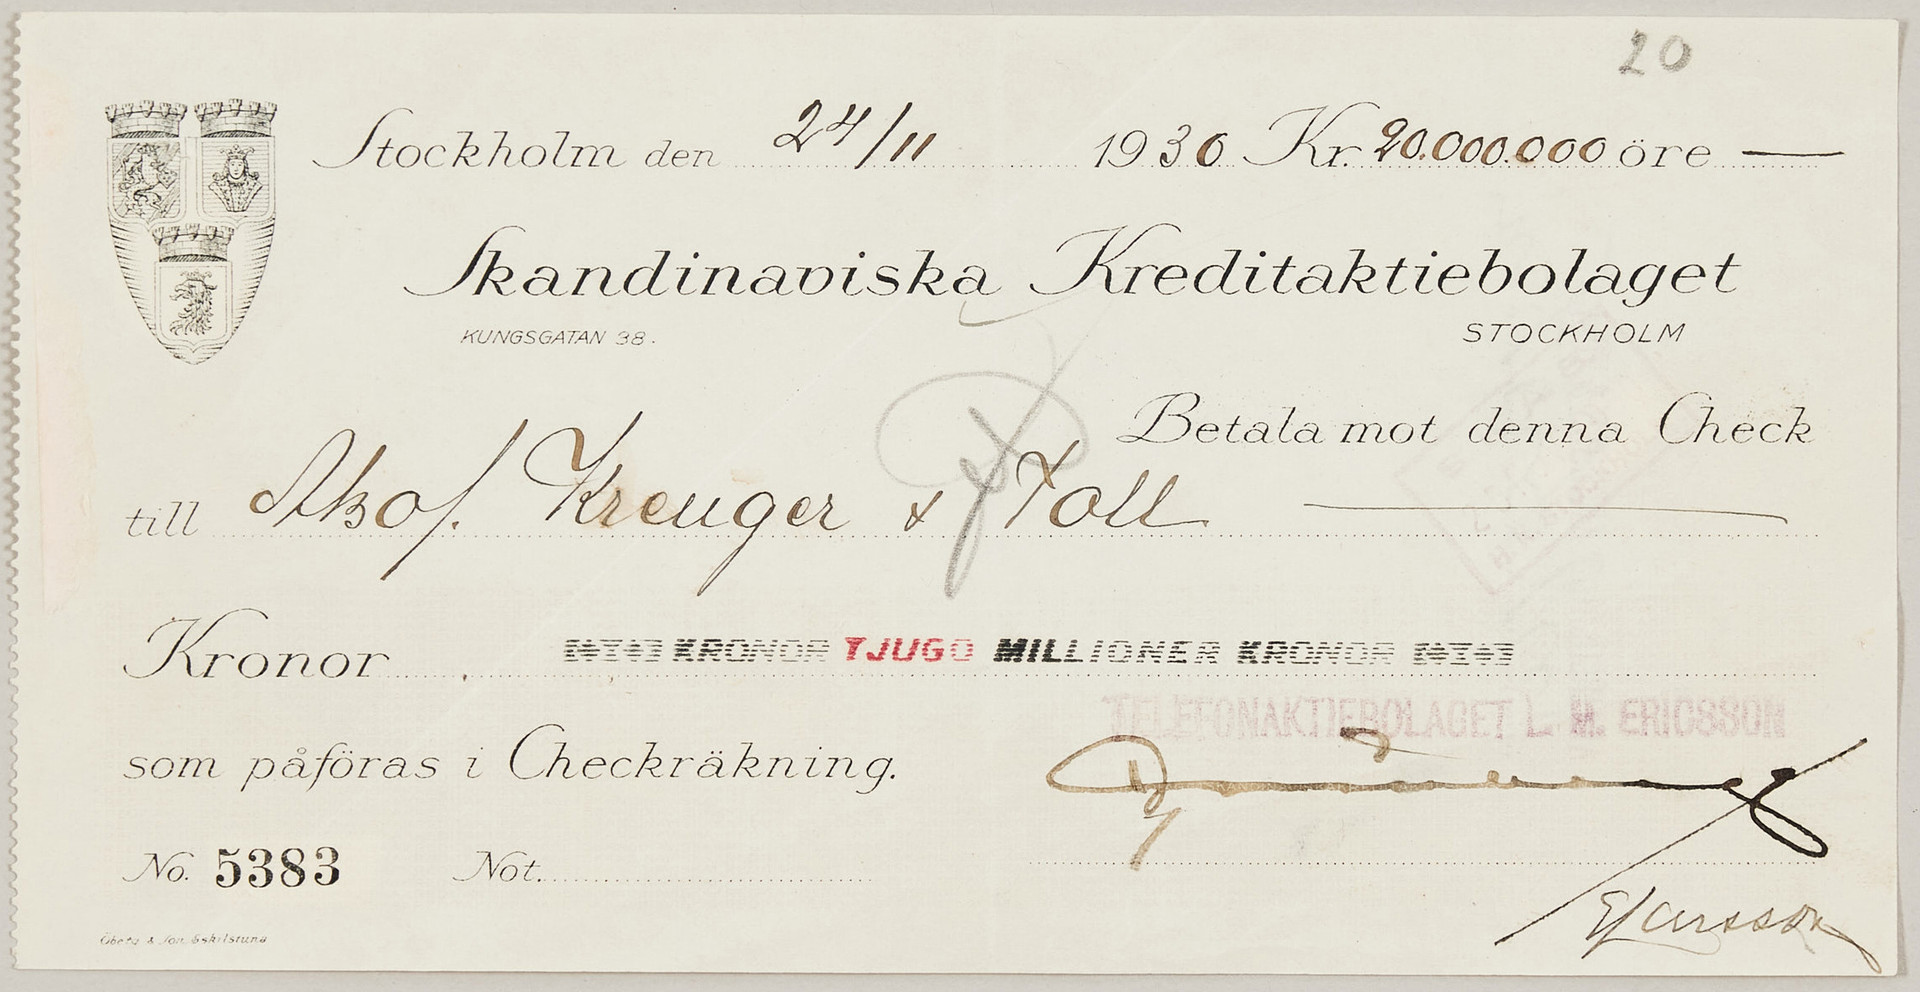 20
Stockholm den 24/11 1930 Kr. 20.000.000 öre —
Skandinaviska Kreditaktiebolaget
KUNGSGATAN 38. STOCKHOLM
Betala mot denna Check
till Akbol. Kreuger & Toll
Kronor KRONOR TJUGO MILLIONER KRONOR
TELEFONAKTIEBOLAGET L. M. ERICSSON
som påföras i Checkräkning.
No. 5383 Not.
Larsson
Öberg & Son, Eskilstuna